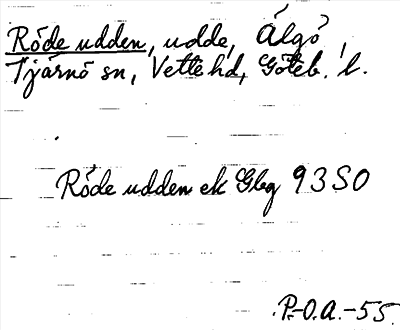 Röde udden, udde, Älgö,
Tjärnö sn, Vette hd, Göteb. l.
Röde udden ek Gbg 93 SO
P.-O.A.-55.